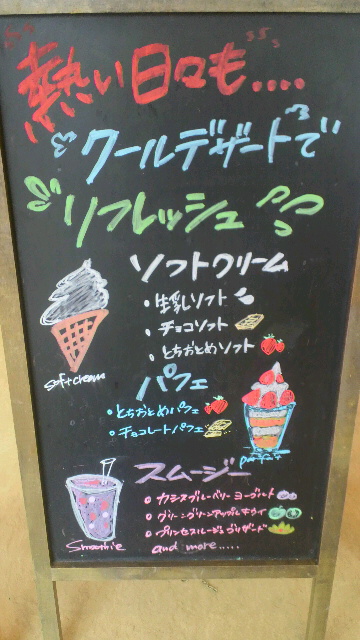 熱い日々も....
クールデザートで
リフレッシュ
ソフトクリーム
・生乳ソフト
・チョコソフト
・とちおとめソフト
soft cream
パフェ
・とちおとめパフェ
・チョコレートパフェ
parfait
スムージー
カシスブルーベリーヨーグルト
グリーングリーンアップルキウイ
プリンセスルージュブリザード
and more.....
Smoothie